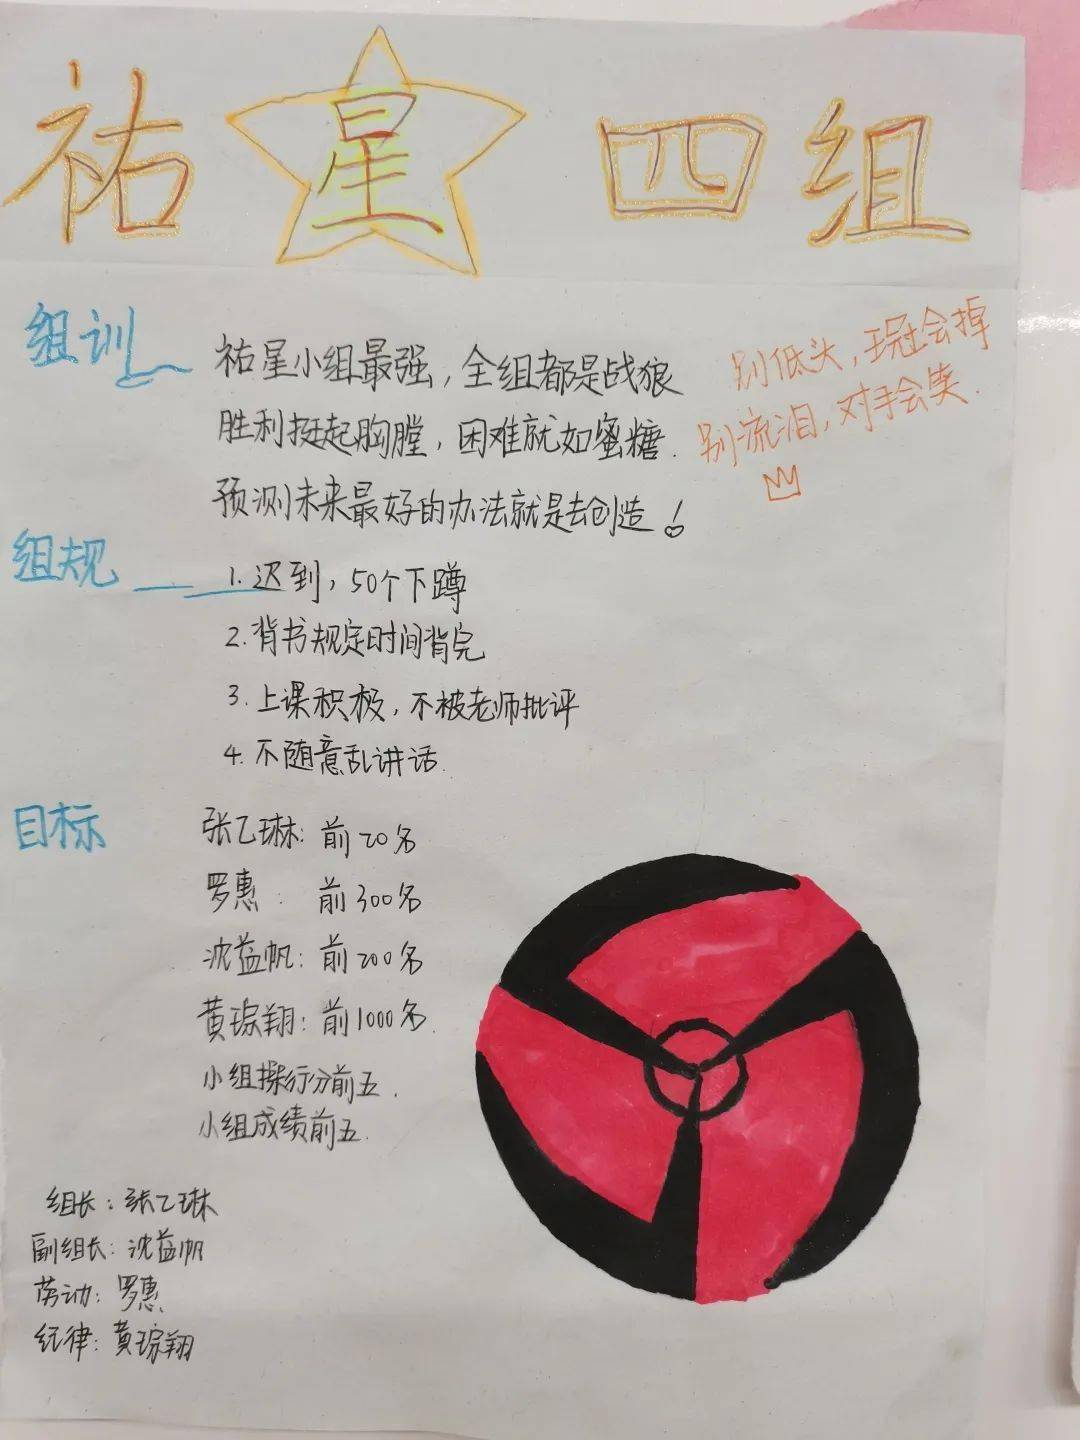 祐星四组
组训
祐星小组最强，全组都是战狼
胜利挺起胸膛，困难就如蜜糖.
预测未来最好的办法就是去创造！
别低头，王冠会掉
别流泪，对手会笑.
组规
1. 迟到，50个下蹲
2. 背书规定时间背完
3. 上课积极，不被老师批评
4. 不随意乱讲话.
目标
张乙琳：前20名
罗惠：前300名
沈益帆：前200名
黄琮翔：前1000名.
小组操行分前五.
小组成绩前五.
组长：张乙琳
副组长：沈益帆
劳动：罗惠
纪律：黄琮翔